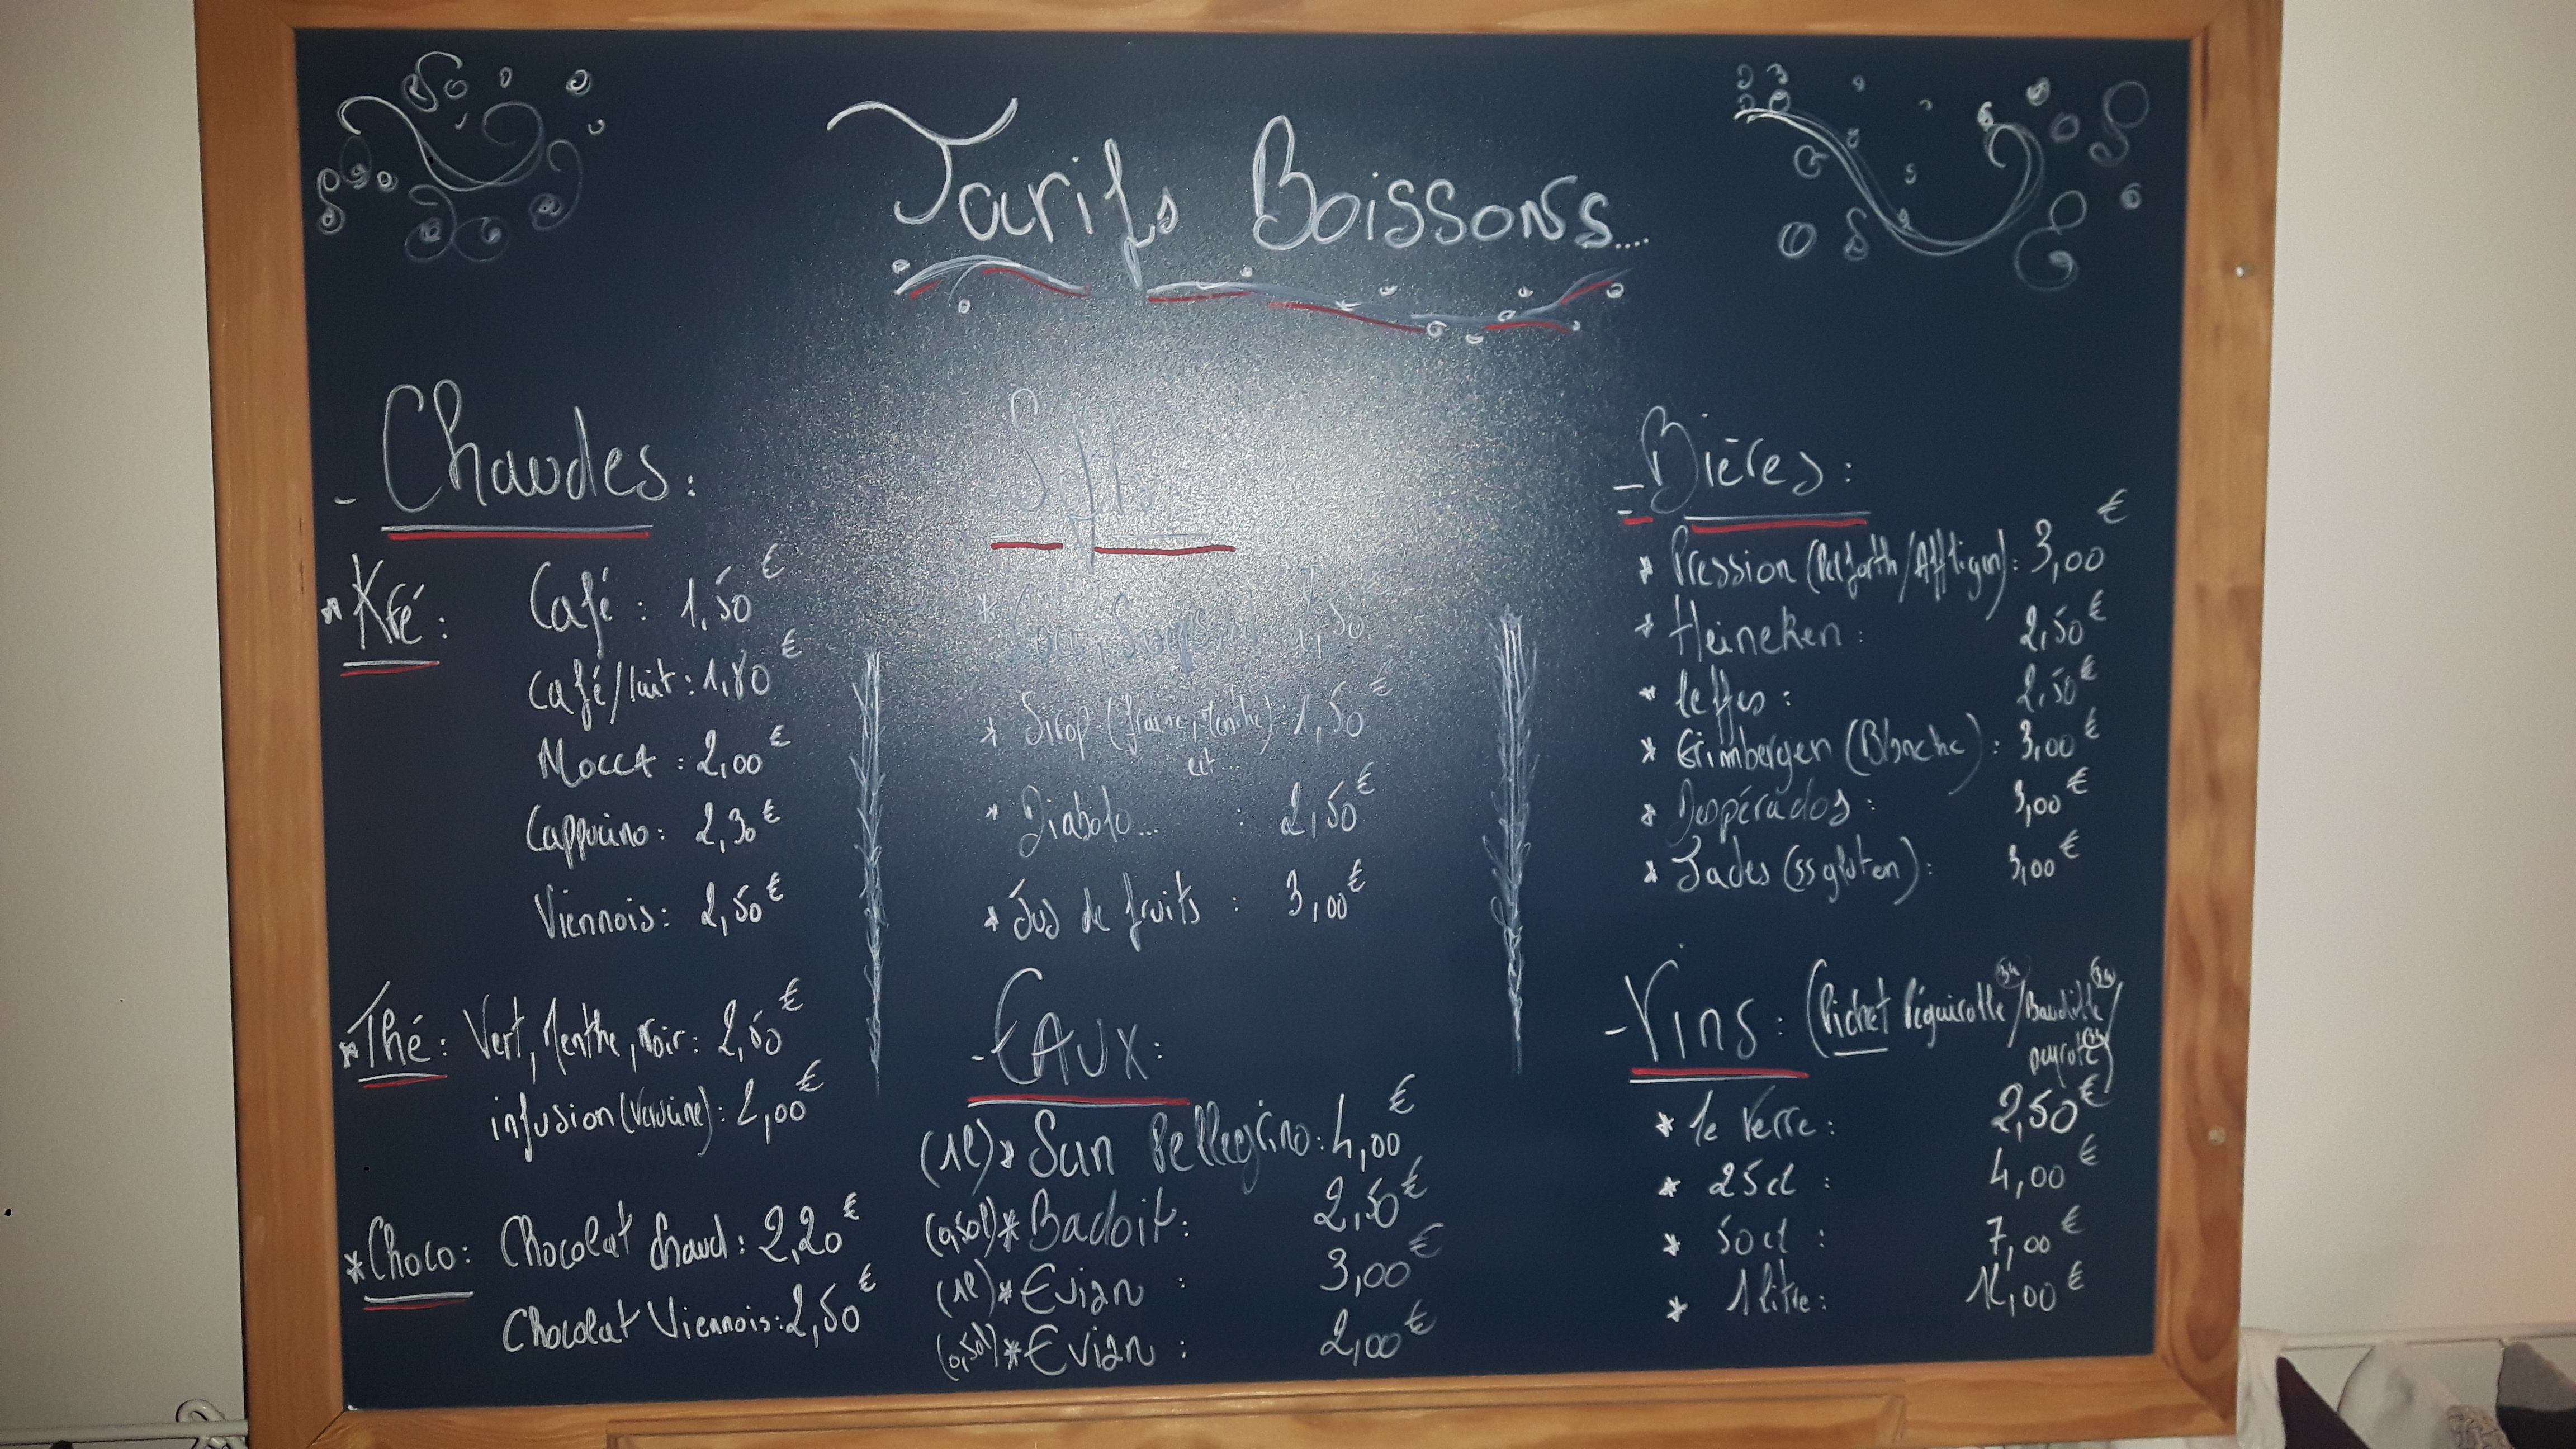 Tarifs Boissons....
- Chaudes :
* Kfé : Café : 1,50 €
Café/lait : 1,80 €
MoccA : 2,00 €
Cappucino : 2,30 €
Viennois : 2,50 €
* Thé : Vert, Menthe, Noir : 2,50 €
infusion (Verveine) : 2,00 €
* Choco : Chocolat chaud : 2,20 €
Chocolat Viennois : 2,50 €
Softs
* 2,50 €
* Sirop (fraise, Menthe) : 1,50 €
ect...
* Diabolo... : 2,50 €
* Jus de fruits : 3,00 €
- EAUX :
(1l) * San Pellegrino : 4,00 €
(0,50l) * Badoit : 2,50 €
(1l) * Evian : 3,00 €
(0,50l) * Evian : 2,00 €
- Bières :
* Pression (Pelforth/Affligen) : 3,00 €
* Heineken : 2,50 €
* leffes : 2,50 €
* Grimbergen (Blanche) : 3,00 €
* Despérados : 3,00 €
* Jades (ss gluten) : 3,00 €
- Vins : (Pichet
* le Verre : 2,50 €
* 25cl : 4,00 €
* 50cl : 7,00 €
* 1 litre : €